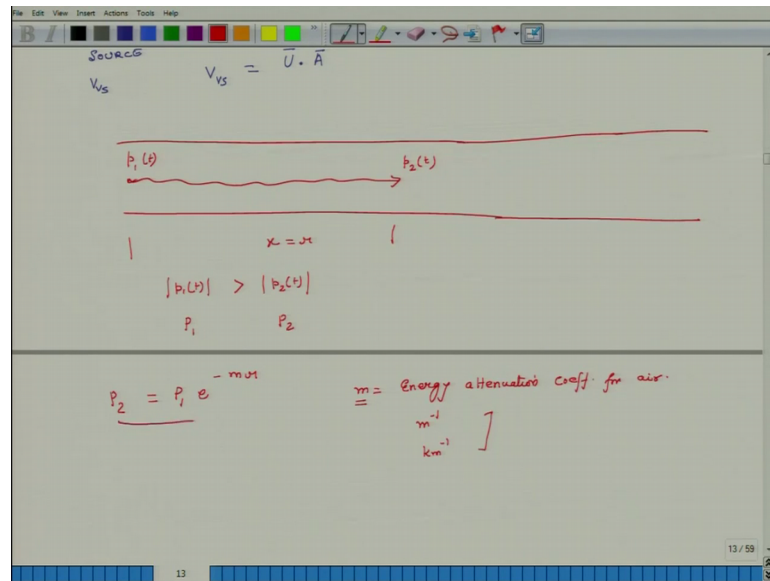 File Edit View Insert Actions Tools Help
B I
SOURCE
V_vs
V_vs = U̅ . A̅
p₁(t) p₂(t)
x = r
|p₁(t)| > |p₂(t)|
P₁ P₂
P₂ = P₁ e^(-mr)
m = Energy attenuation coeff. for air.
m⁻¹
km⁻¹
13 / 59
13